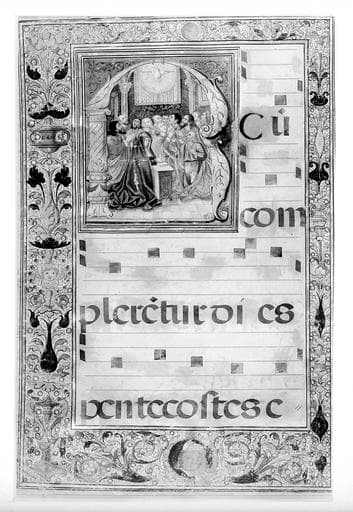 Cū
com
plerētur di es
pentecoſtes e